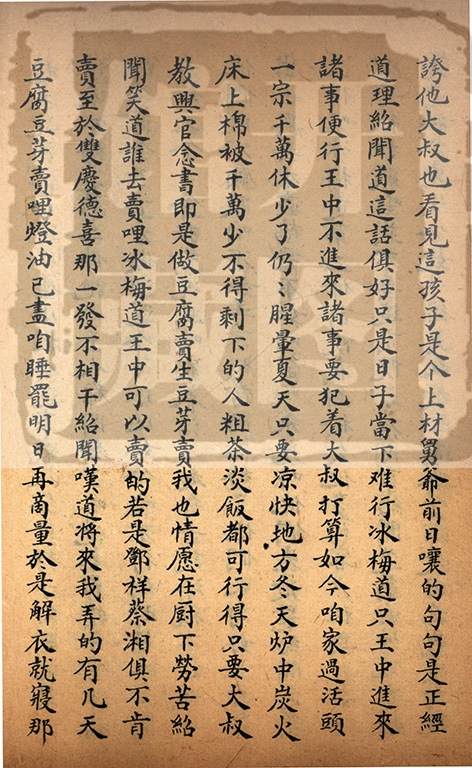 誇他大叔也看見這孩子是个上材舅爺前日嚷的句句是正經
道理紹聞道這話俱好只是日子當下难行冰梅道只王中進來
諸事便行王中不進來諸事要犯着大叔打算如今咱家過活頭
一宗千萬休少了仍〻腥暈夏天只要凉快地方冬天炉中炭火
床上棉被千萬少不得剩下的人粗茶淡飯都可行得只要大叔
教興官念書即是做豆腐賣生豆芽賣我也情愿在厨下勞苦紹
聞笑道誰去賣哩冰梅道王中可以賣的若是鄧祥蔡湘俱不肯
賣至於雙慶德喜那一發不相干紹聞嘆道將來我弄的有几天
豆腐豆芽賣哩燈油已盡咱睡罷明日再商量於是解衣就寢那